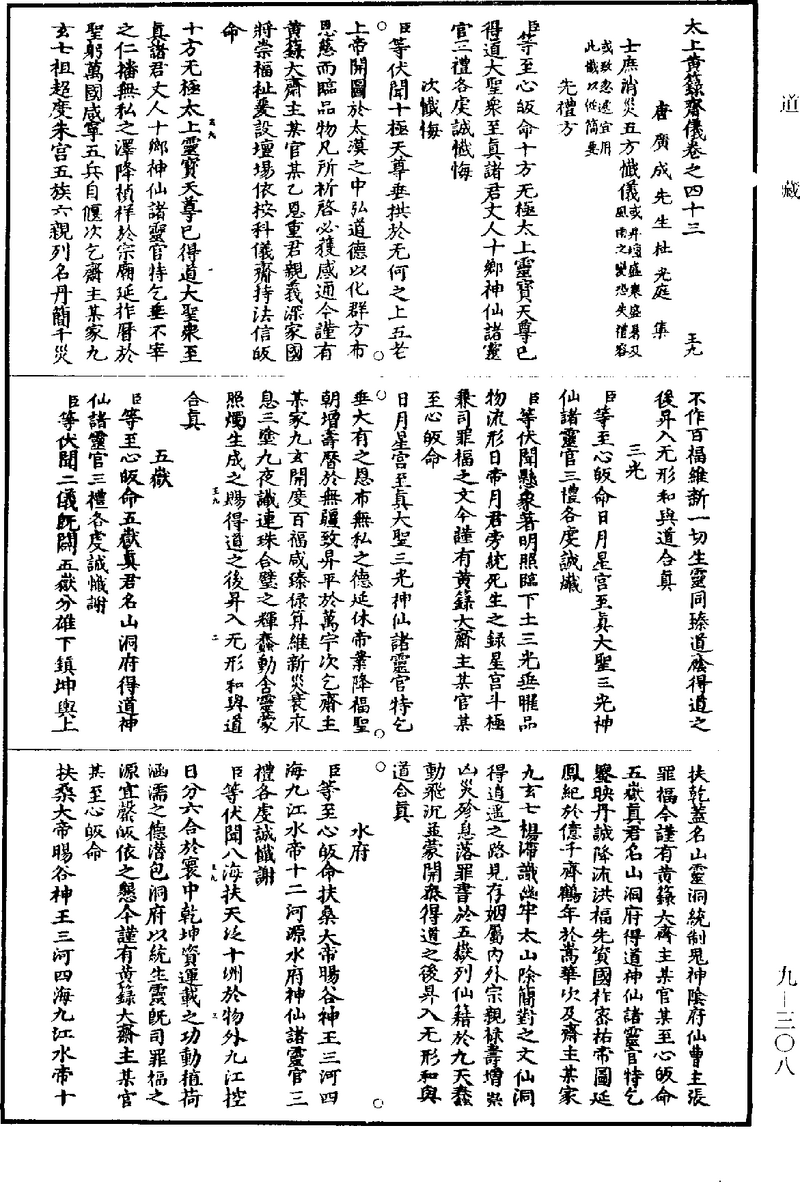 道藏
太上黃籙齋儀卷之四十三
唐廣成先生杜光庭集
士庶消災五方懺儀或丹壇盛暑及
或致忩遽宜用
風雨之變恐失禮容
此懺以從簡要
先禮方
臣等至心皈命十方无極太上靈寶天尊已
得道大聖衆至真諸君丈人十鄉神仙諸靈
官三禮各虔誠懺悔
次懺悔
臣等伏聞十極天尊垂拱於无何之上五老
上帝開圖於太漠之中弘道德以化群方布
恩慈而臨品物凡所祈啓必獲感通今謹有
黃籙大齋主某官某乙恩重君親義深家國
將崇福祉爰設壇場依按科儀齋持法信皈
命
十方无極太上靈寶天尊已得道大聖衆至
真諸君丈人十鄉神仙諸靈官特乞垂不宰
之仁播無私之澤降楨祥於宗廟延祚曆於
聖躬萬國咸寧五兵自偃次乞齋主某家九
玄七祖超度朱宮五族六親列名丹簡千災
不作百福維新一切生靈同臻道蔭得道之
後昇入无形和與道合真
三光
臣等至心皈命日月星宮至真大聖三光神
仙諸靈官三禮各虔誠懺
臣等伏聞懸象著明照臨下土三光垂曜品
物流形日帝月君旁統死生之錄星宮斗極
衆司罪福之文今謹有黃籙大齋主某官某
至心皈命
日月星宮至真大聖三光神仙諸靈官特乞
垂大有之恩布無私之德延休帝業降福聖
朝增壽曆於無疆致昇平於萬宇次乞齋主
某家九玄開度百福咸臻祿算維新災衰永
息三塗九夜識連珠合璧之輝蠢動含靈蒙
照燭生成之賜得道之後昇入无形和與道
合真
五嶽
臣等至心皈命五嶽真君名山洞府得道神
仙諸靈官三禮各虔誠懺謝
臣等伏聞二儀旣闢五嶽分雄下鎮坤輿上
扶乾蓋名山靈洞統制鬼神陰府仙曹主張
罪福今謹有黃籙大齋主某官某至心皈命
五嶽真君名山洞府得道神仙諸靈官特乞
鑒映丹誠降流洪福先資國祚密祐帝圖延
鳳紀於億千齊鶴年於嵩華次及齋主某家
九玄七祖滯識幽牢太山除簡對之文仙洞
得逍遥之路見存姻屬內外宗親祿壽增崇
凶災殄息落罪書於五嶽列仙籍於九天蠢
動飛沉並蒙開泰得道之後昇入无形和與
道合真
水府
臣等至心皈命扶桑大帝暘谷神王三河四
海九江水帝十二河源水府神仙諸靈官三
禮各虔誠懺謝
臣等伏聞八海扶天泛十洲於物外九江控
日分六合於寰中乾坤資運載之功動植荷
涵濡之德潛包洞府以統生靈旣司罪福之
源宜罄皈依之懇今謹有黃籙大齋主某官
某至心皈命
扶桑大帝暘谷神王三河四海九江水帝十
九—三〇八